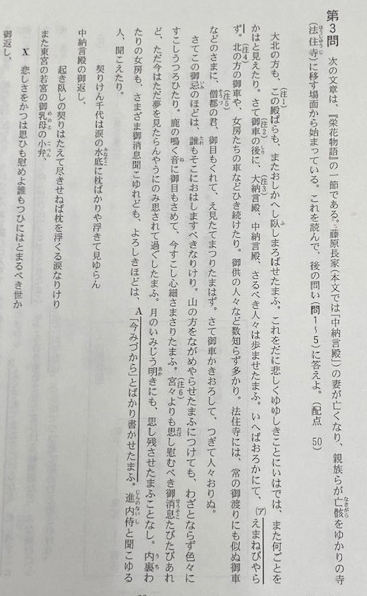 第3問 次の文章は、『栄花物語』の一節である。藤原長家(本文では「中納言殿」)の妻が亡くなり、親族らが亡骸をゆかりの寺
(法住寺)に移す場面から始まっている。これを読んで、後の問い(問1～5)に答えよ。(配点 50)
(注1)大北の方も、この殿ばらも、またおしかへし臥しまろばせたまふ。これをだに悲しくゆゆしきことにいはでは、また何ごとを
かはと見えたり。さて(注2)御車の後に、(注3)大納言殿、中納言殿、さるべき人々は歩ませたまふ。いへばおろかにて、(ア)えまねびやら
ず。(注4)北の方の御車や、女房たちの車などひき続けたり。御供の人々など数知らず多かり。法住寺には、常の御渡りにも似ぬ御車
などのさまに、(注5)僧都の君、御目もくれて、え見たてまつりたまはず。さて御車かきおろして、つぎて人々おりぬ。
さてこの御忌のほどは、誰もそこにおはしますべきなりけり。山の方をながめやらせたまふにつけても、わざとならず色々に
すこしうつろひたり。鹿の鳴く音に御目もさめて、今すこし心細さまさりたまふ。(注6)宮々よりも思し慰むべき御消息たびたびあれ
ど、ただ今はただ夢を見たらんやうにのみ思されて過ぐしたまふ。月のいみじう明きにも、思し残させたまふことなし。内裏わ
たりの女房も、さまざま御消息聞こゆれども、よろしきほどは、A「今みづから」とばかり書かせたまふ。進内侍と聞こゆる
人、聞こえたり。
契りけん千代は涙の水底に枕ばかりや浮きて見ゆらん
中納言殿の御返し、
起き臥しの契りはたえて尽きせねば枕を浮くる涙なりけり
また東宮の若宮の御乳母の小弁、
X 悲しさをかつは思ひも慰めよ誰もつひにはとまるべき世か
御返し、